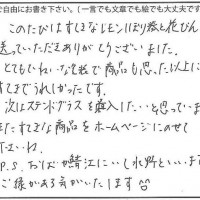 自由にお書き下さい。(一言でも文章でも絵でも大丈夫です
このたびはすてきなレモンしぼり器と花びん
送っていただきありがとうございました。
とてもていねいな包装で商品も思った以上に
すてきでうれしかったです。
次はステンドグラスを購入したい…と思っていま
またすてきな商品をホームページにのせて
下さいね。
P.S. おばが鯖江にいて水野といいます
ご縁がある方がいたします